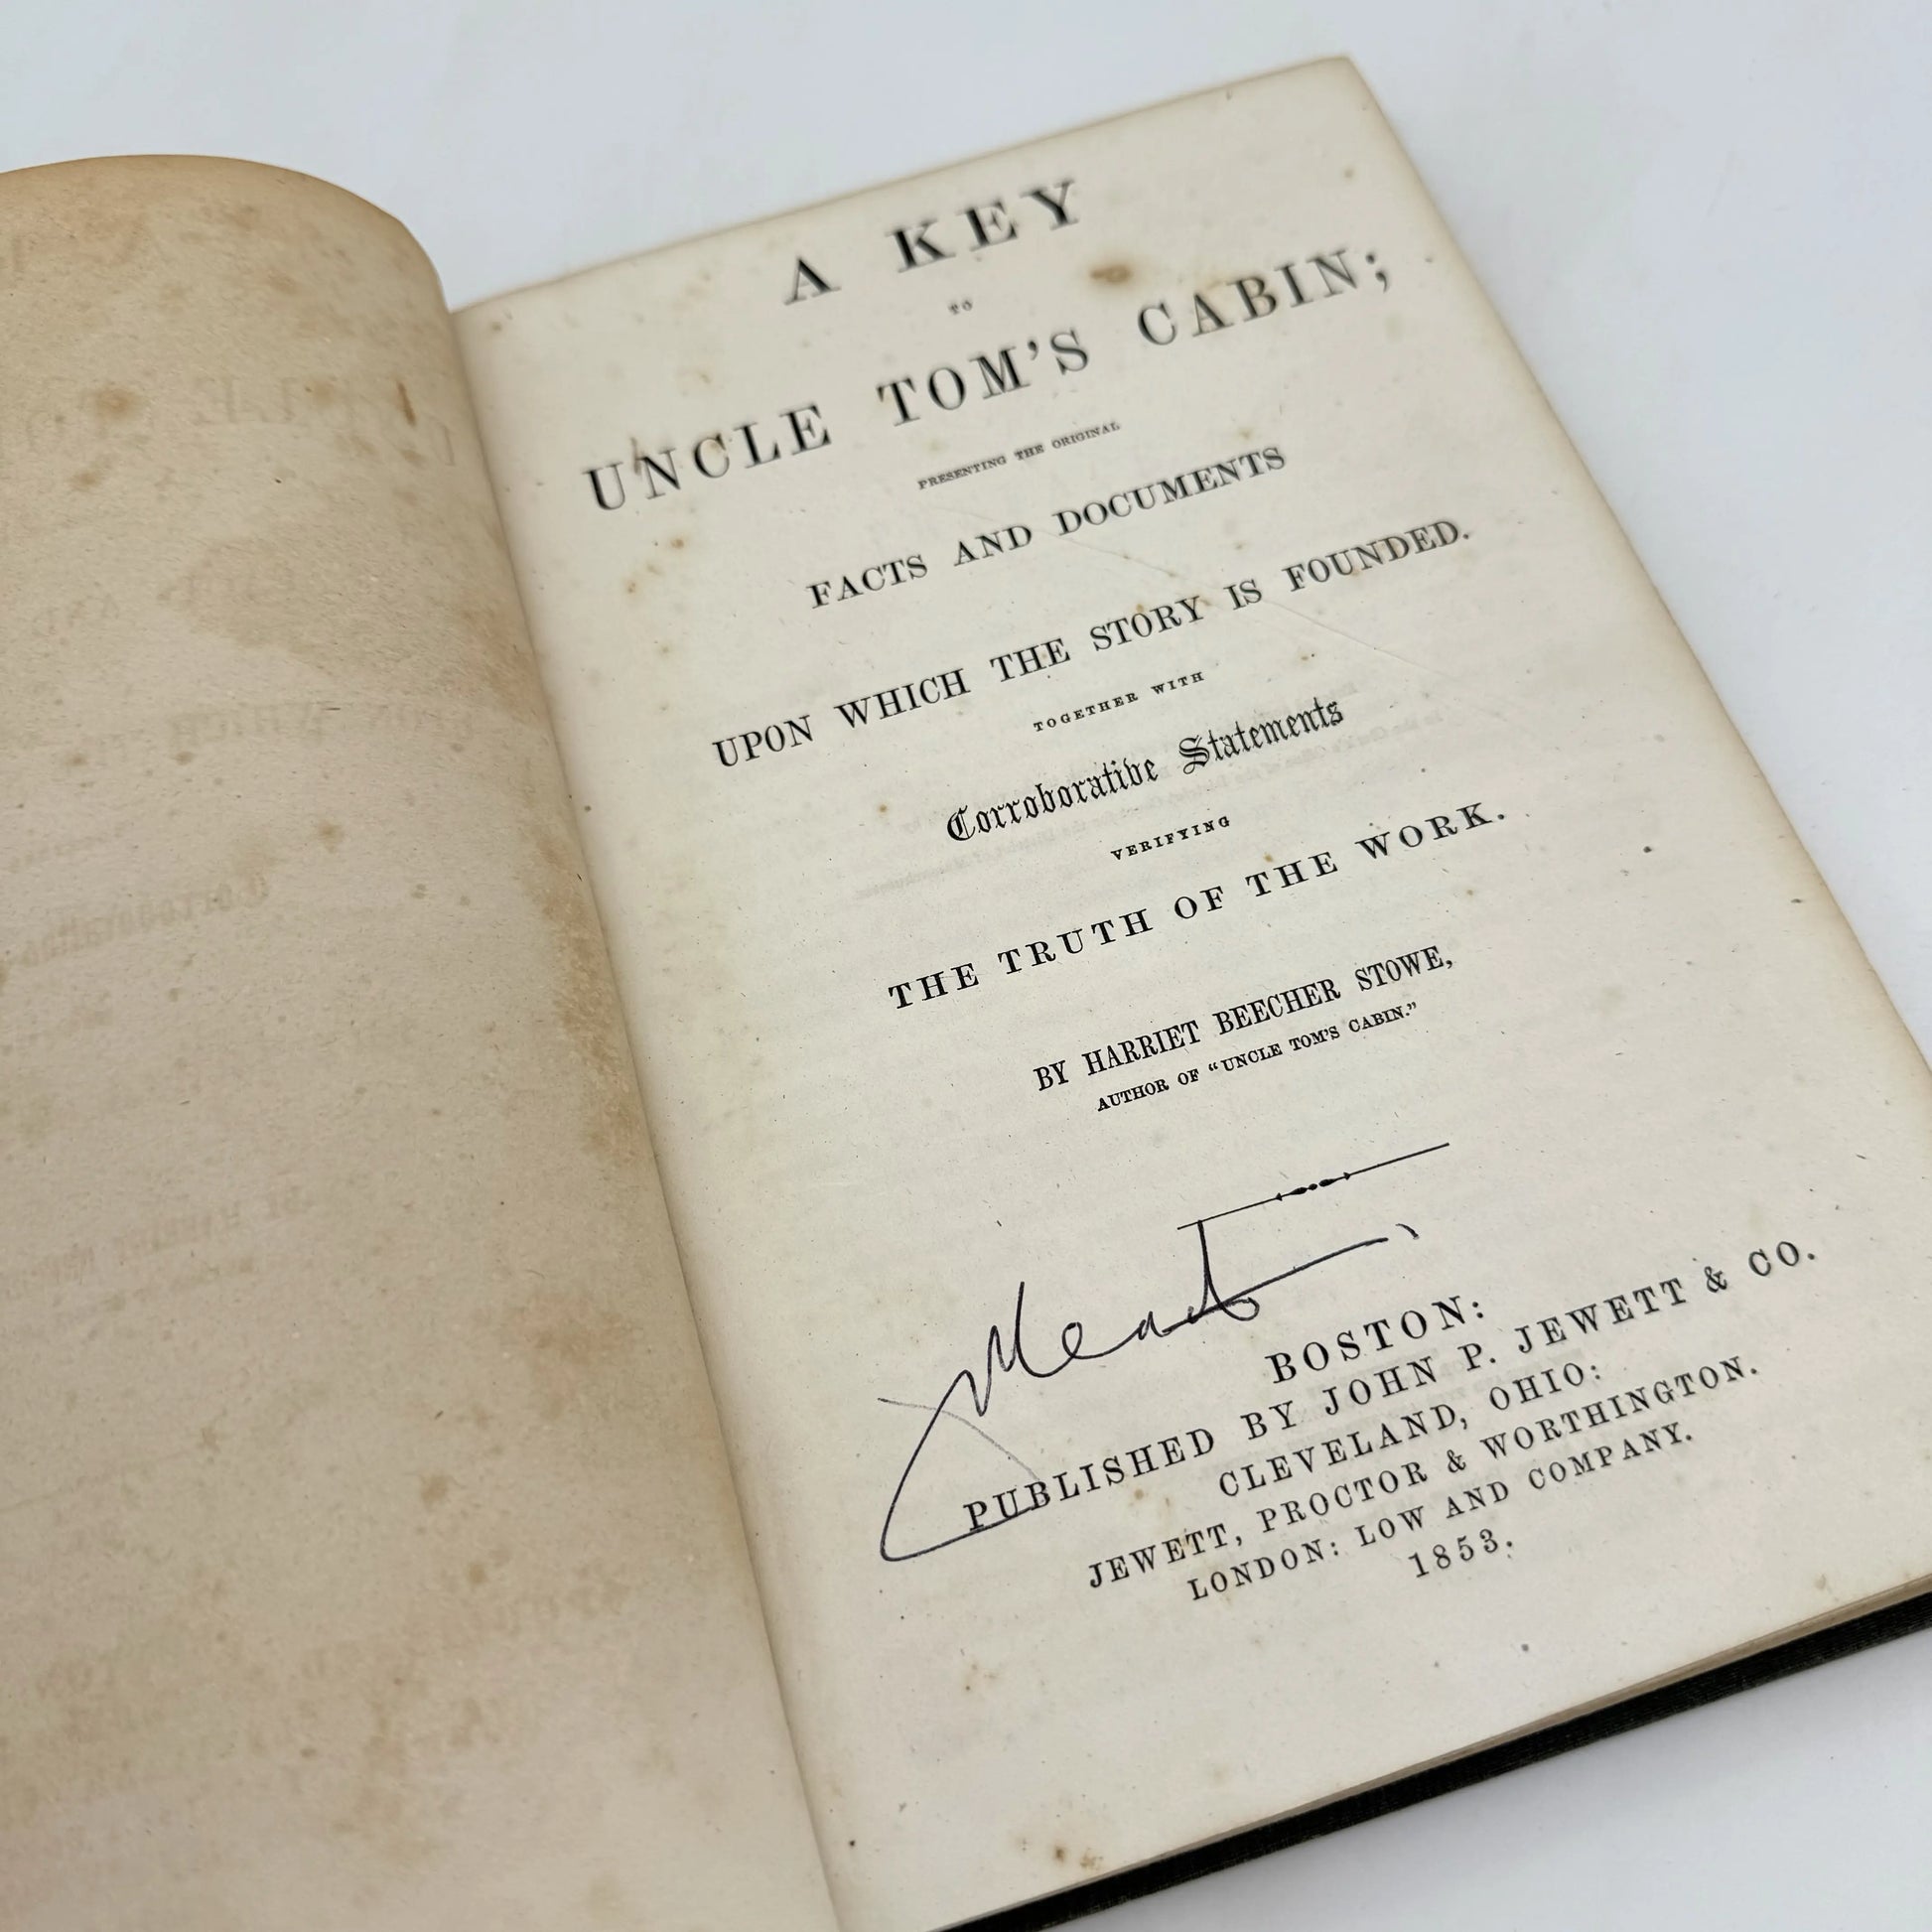 A KEY
TO
UNCLE TOM'S CABIN;
PRESENTING THE ORIGINAL
FACTS AND DOCUMENTS
UPON WHICH THE STORY IS FOUNDED.
TOGETHER WITH
Corroborative Statements
VERIFYING
THE TRUTH OF THE WORK.
BY HARRIET BEECHER STOWE,
AUTHOR OF “UNCLE TOM'S CABIN.”
BOSTON:
PUBLISHED BY JOHN P. JEWETT & CO.
CLEVELAND, OHIO:
JEWETT, PROCTOR & WORTHINGTON.
LONDON: LOW AND COMPANY.
1853.